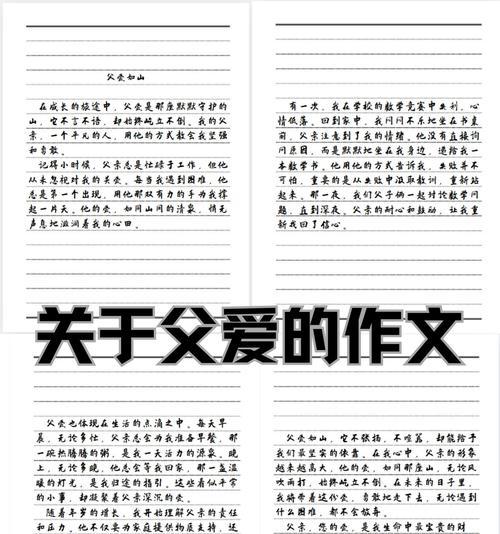 父爱如山
在成长的旅途中，父爱是那座默默守护的
山，它不言不语，却始终屹立不倒。我的父
亲，一个平凡的人，用他的方式教会我坚强
和勇敢。
记得小时候，父亲总是忙碌于工作，但他
从未忽视对我的关爱。每当我遇到困难，他
总是第一个出现，用他那双有力的手为我撑
起一片天。他的爱，如同山间的清泉，悄无
声息地滋润着我的心田。
有一次，我在学校的数学竞赛中失利，心
情低落。回到家中，我闷闷不乐地坐在书桌
前，父亲注意到了我的情绪。他没有直接询
问原因，而是默默地坐在我身边，递给我一
本数学书。他用他的方式告诉我，失败并不
可怕，重要的是从失败中汲取教训，重新站
起来。那一夜，我们父子俩一起讨论数学问
题，直到深夜。父亲的耐心和鼓励，让我重
新找回了信心。
关于父爱的作文
父爱也体现在生活的点滴之中。每天早
晨，无论多忙，父亲总会为我准备早餐，那
一碗热腾腾的粥，是我一天活力的源泉。晚
上，无论多晚，他总会等我回家，那一盏温
暖的灯光，是我归途的指引。这些看似平常
的小事，却凝聚着父亲深沉的爱。
随着年岁的增长，我开始理解父亲的责任
和压力。他不仅要为家庭提供物质支持，还
父爱如山，它不张扬，不喧嚣，却能给予
我们最坚实的依靠。在我心中，父亲的形象
越来越高大，他的爱，如同那座山，无论风
吹雨打，始终屹立不倒。在未来的日子里，
我将带着这份爱，勇敢地走下去，无论遇到
什么困难，都不会放弃。
父亲，您的爱，是我生命中最宝贵的财